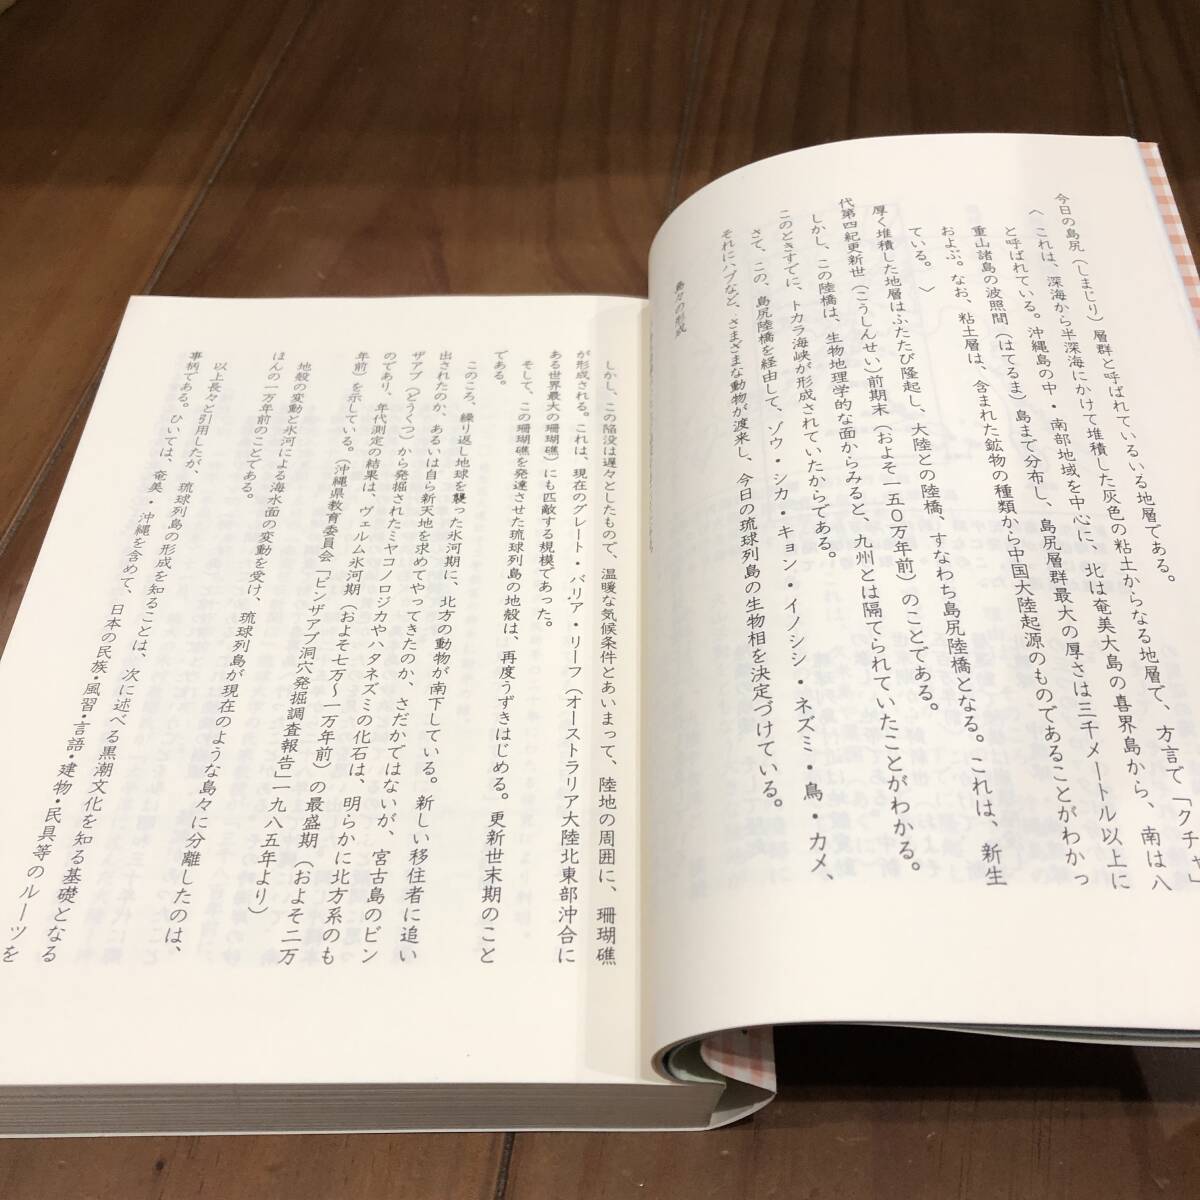 今日の島尻（しまじり）層群と呼ばれているいる地層である。
〈これは、深海から半深海にかけて堆積した灰色の粘土からなる地層で、方言で「クチャ」
と呼ばれている。沖縄島の中・南部地域を中心に、北は奄美大島の喜界島から、南は八
重山諸島の波照間（はてるま）島まで分布し、島尻層群最大の厚さは三千メートル以上に
およぶ。なお、粘土層は、含まれた鉱物の種類から中国大陸起源のものであることがわかっ
ている。〉
厚く堆積した地層はふたたび隆起し、大陸との陸橋、すなわち島尻陸橋となる。これは、新生
代第四紀更新世（こうしんせい）前期末（およそ一五〇万年前）のことである。
しかし、この陸橋は、生物地理学的な面からみると、九州とは隔てられていたことがわかる。
このときすでに、トカラ海峡が形成されていたからである。
さて、この、島尻陸橋を経由して、ゾウ・シカ・キョン・イノシシ・ネズミ・鳥・カメ、
それにハブなど、さまざまな動物が渡来し、今日の琉球列島の生物相を決定づけている。
島々の形成
しかし、この陥没は遅々としたもので、温暖な気候条件とあいまって、陸地の周囲に、珊瑚礁
が形成される。これは、現在のグレート・バリア・リーフ（オーストラリア大陸北東部沖合に
ある世界最大の珊瑚礁）にも匹敵する規模であった。
そして、この珊瑚礁を発達させた琉球列島の地殻は、再度うずきはじめる。更新世末期のこと
である。
このころ、繰り返し地球を襲った氷河期に、北方の動物が南下している。新しい移住者に追い
出されたのか、あるいは自ら新天地を求めてやってきたのか、さだかではないが、宮古島のピン
ザアブ（どうくつ）から発掘されたミヤコノロジカやハタネズミの化石は、明らかに北方系のも
のであり、年代測定の結果は、ヴェルム氷河期（およそ七万〜一万年前）の最盛期（およそ二万
年前）を示している。（沖縄県教育委員会「ピンザアブ洞穴発掘調査報告」一九八五年より）
地殻の変動と氷河による海水面の変動を受け、琉球列島が現在のような島々に分離したのは、
ほんの一万年前のことである。
以上長々と引用したが、琉球列島の形成を知ることは、次に述べる黒潮文化を知る基礎となる
事柄である。ひいては、奄美・沖縄を含めて、日本の民族・風習・言語・建物・民具等のルーツを